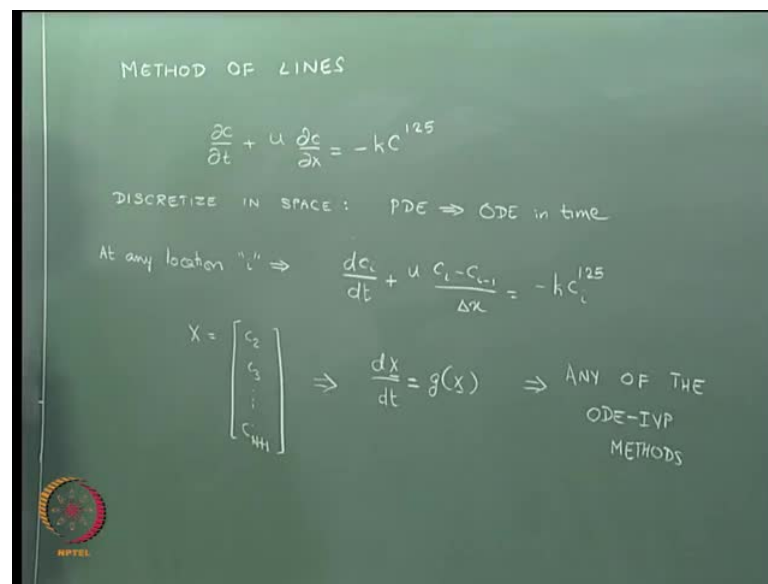 METHOD OF LINES
∂c/∂t + u ∂c/∂x = -kC^125
DISCRETIZE IN SPACE : PDE ⇒ ODE in time
At any location "i" ⇒ dc_i/dt + u (c_i - c_{i-1})/Δx = -kc_i^125
X = [c_2 c_3 ⋮ c_{N+1}] ⇒ dx/dt = g(x) ⇒ ANY OF THE
ODE-IVP
METHODS
NPTEL